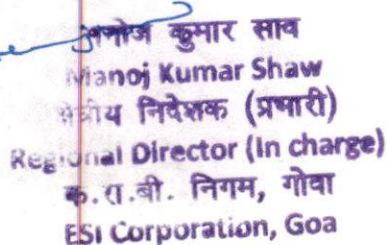 मनोज कुमार साव
Manoj Kumar Shaw
क्षेत्रीय निदेशक (प्रभारी)
Regional Director (In charge)
क.रा.बी. निगम, गोवा
ESI Corporation, Goa